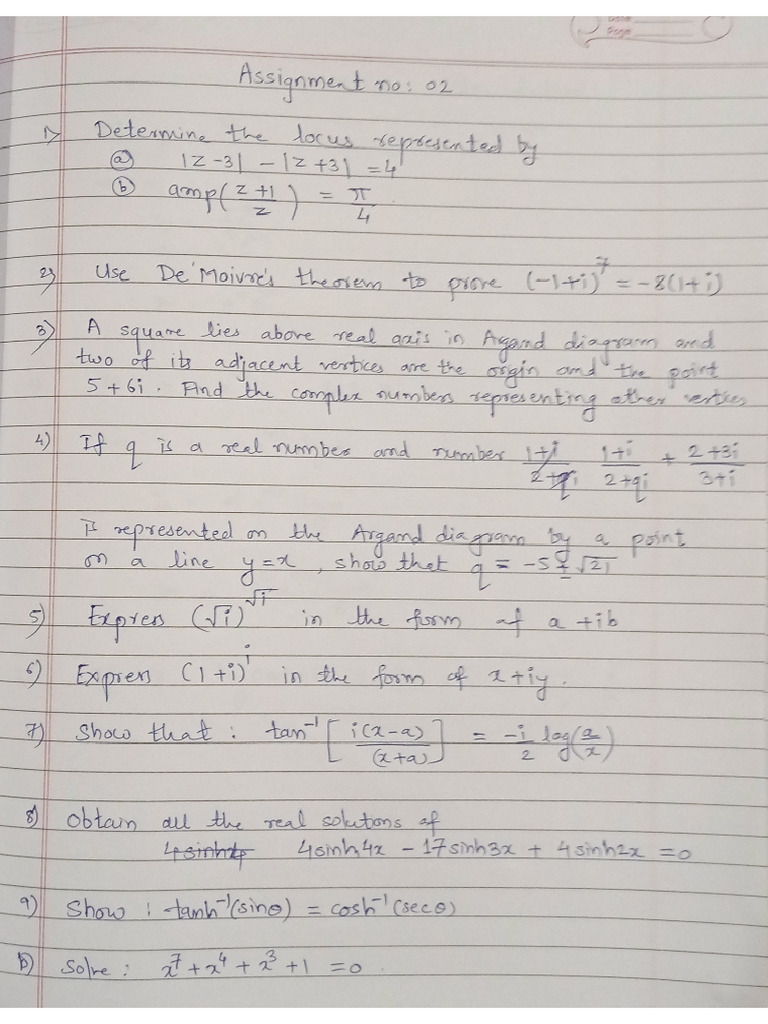 Date
Page
Assignment no: 02
1) Determine the locus represented by
(a) |z-3| - |z+3| = 4
(b) amp((z+1)/z) = π/4
2) Use De'Moivre's theorem to prove (-1+i)^7 = -8(1+i)
3) A square lies above real axis in Agand diagram and
two of its adjacent vertices are the origin and the point
5+6i. Find the complex numbers representing other vertices
4) If q is a real number and number (1+i)/(2+qi) (1+i)/(2+qi) + (2+3i)/(3+i)
is represented on the Argand diagram by a point
on a line y=x, show that q = -5±√21
5) Express (√i)^√i in the form of a+ib
6) Express (1+i)^i in the form of x+iy.
7) Show that: tan⁻¹[i(x-a)/(x+a)] = -i/2 log(a/x)
8) Obtain all the real solutions of
4sinh4x - 17sinh3x + 4sinh2x = 0
9) Show: tanh⁻¹(sinθ) = cosh⁻¹(secθ)
10) Solve: x^7 + x^4 + x^3 + 1 = 0.